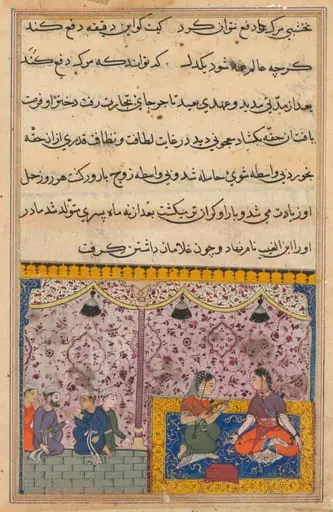 نخشبی مرک که دفع تواند کرد کیست کو این دقیقه دفع کند
کرچه عالم همه شود یکدل که تواند که مرک دفع کند
بعد از مدتی مدید و عهدی بعید تاجر جای بتجارت رفت دختر او فرصت
یافت آن حقه بکشاد معجونی دید در غایت لطافت و نظافت قدری از ان حقه
بخورد بی واسطه شوی حامله شد و بی واسطه زوج بارور کشت هر روز حمل
او زیادت می شد و بار او کران تر میکشت بعد از نه ماه پسری متولد شد مادر
او را ابن الغیب نام نهاد و چون غلامان داشتن کرفت